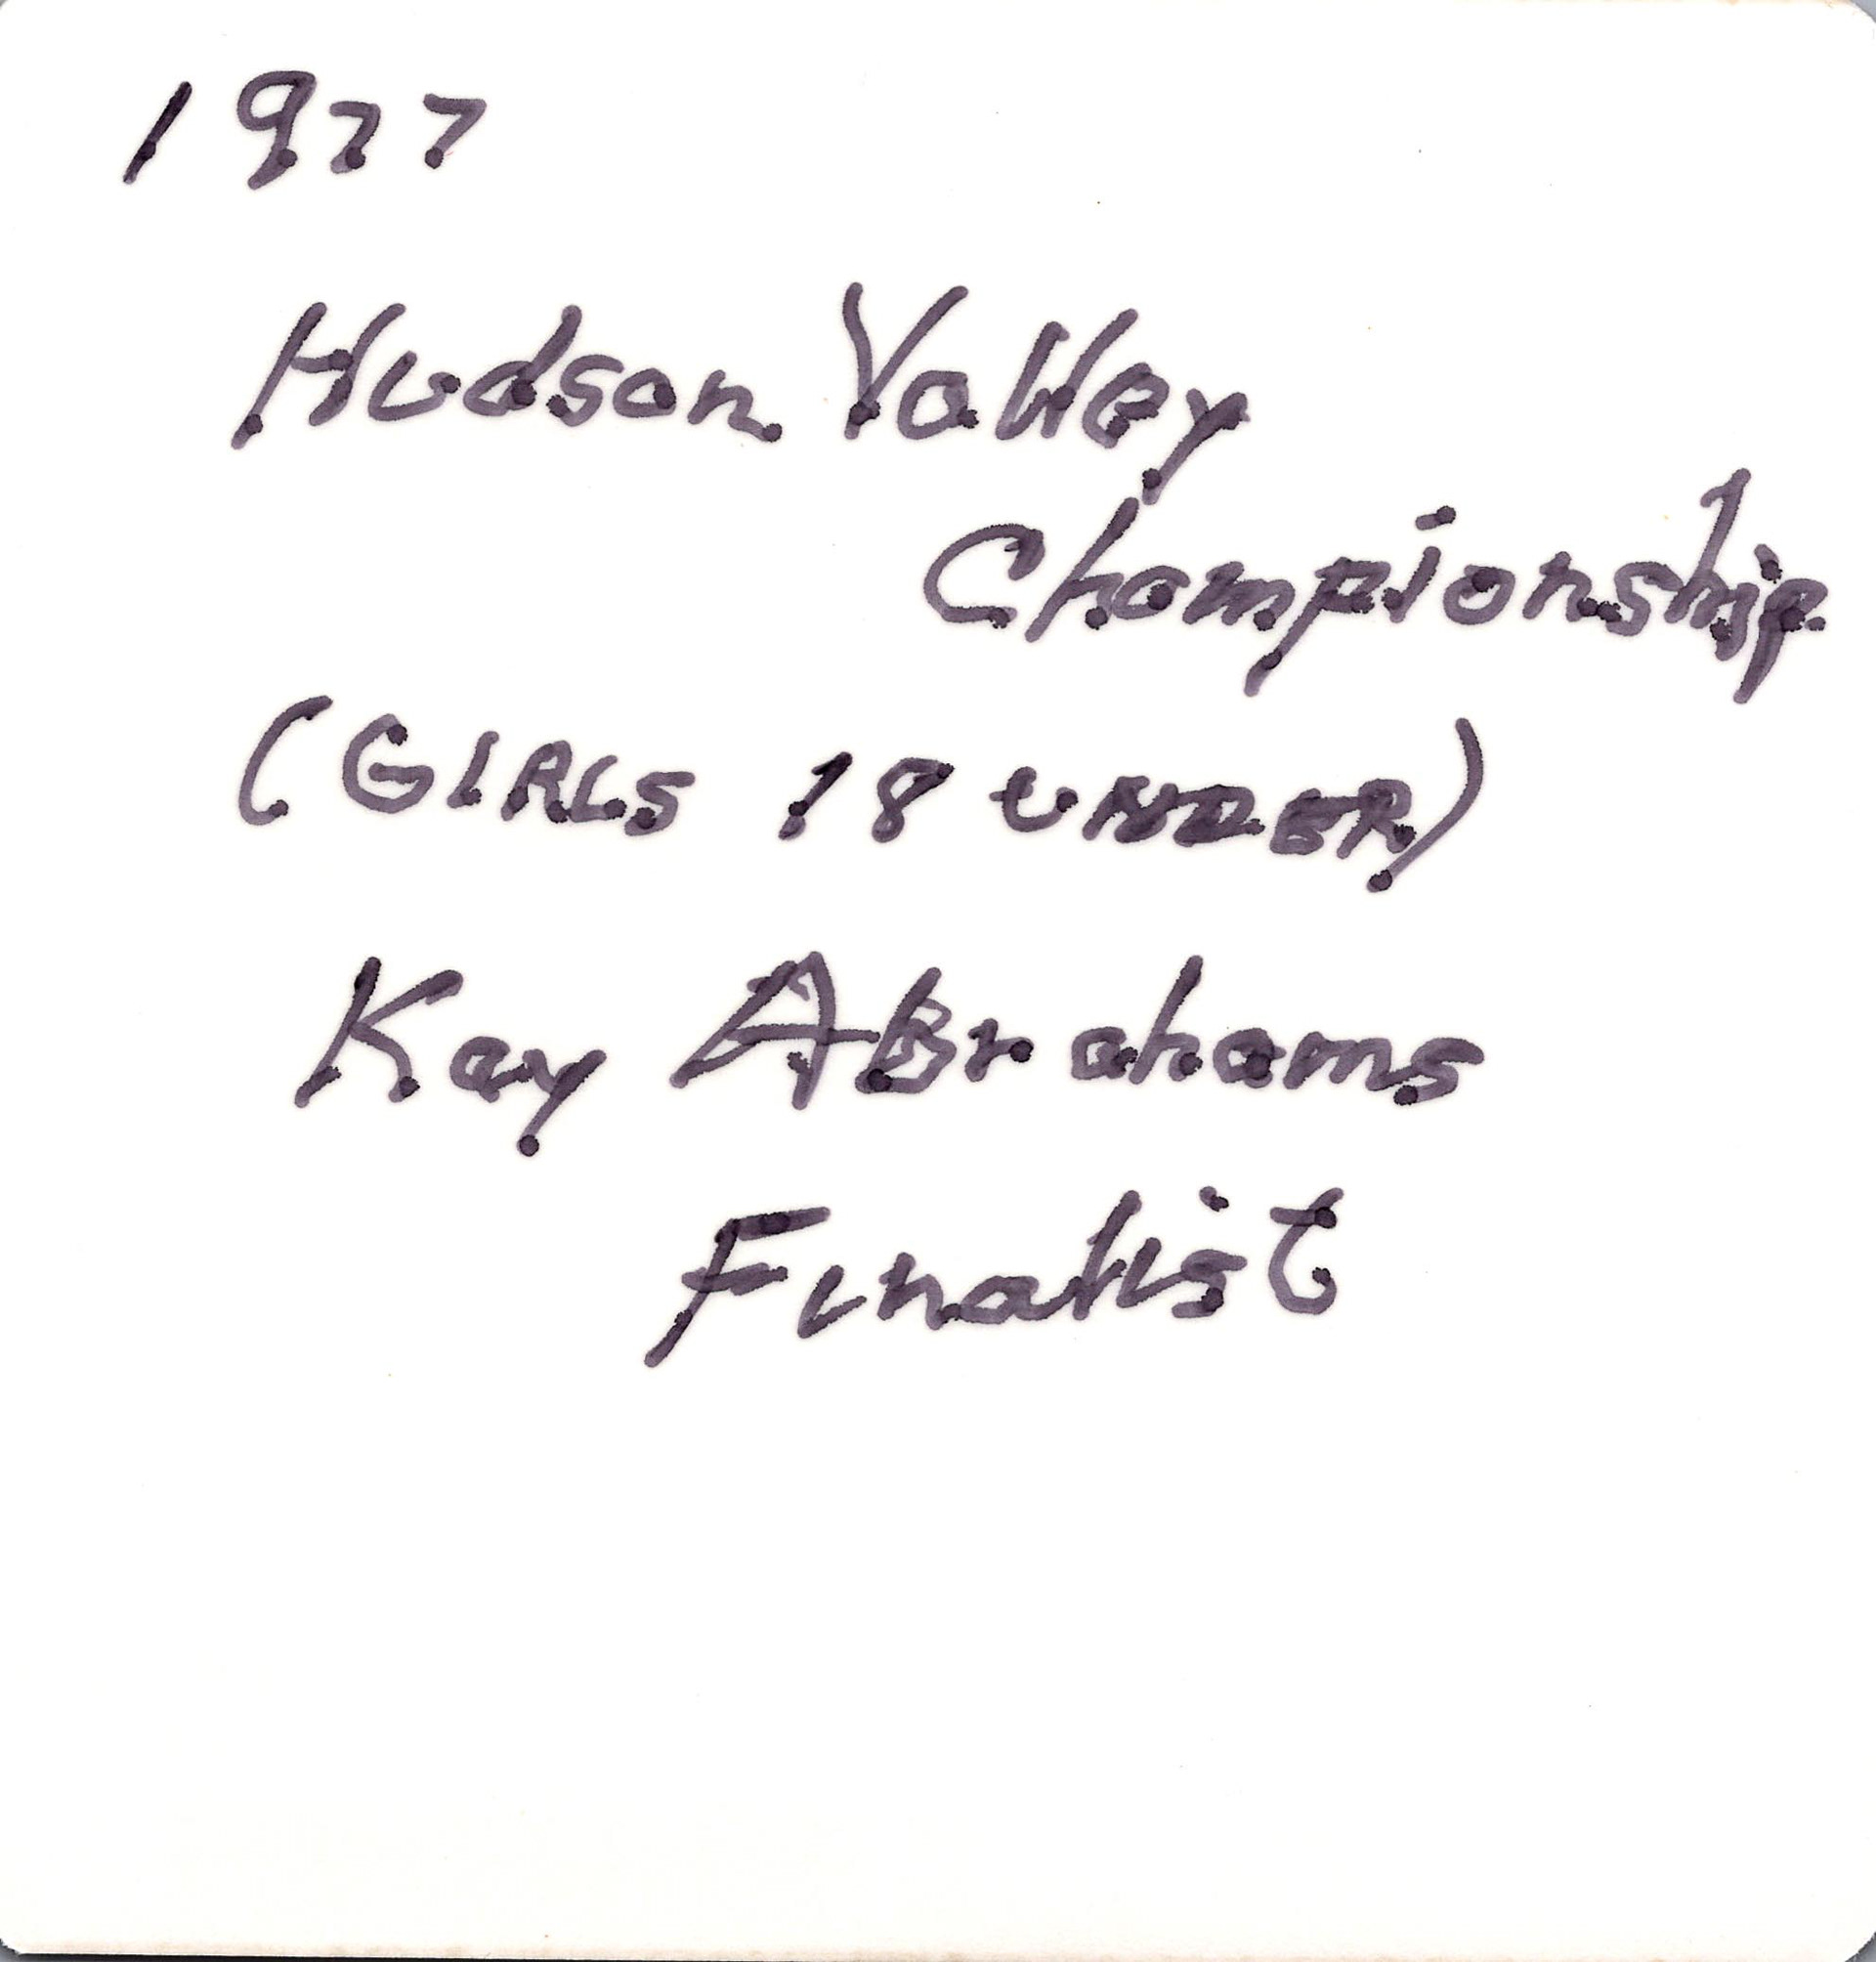 1977
Hudson Valley
Championship
(GIRLS 18 UNDER)
Kay Abrahams
Finalist